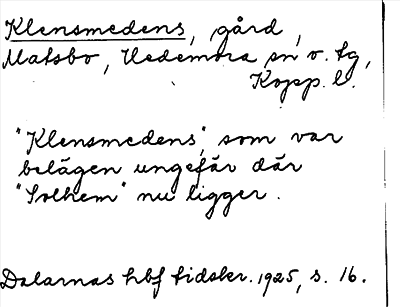 Klensmedens, gård,
Matsbo, Hedemora sn o. tg,
Kopp. l.
"Klensmedens", som var
belägen ungefär där
"Solhem" nu ligger.
Dalarnas hbf tidskr. 1925, s. 16.